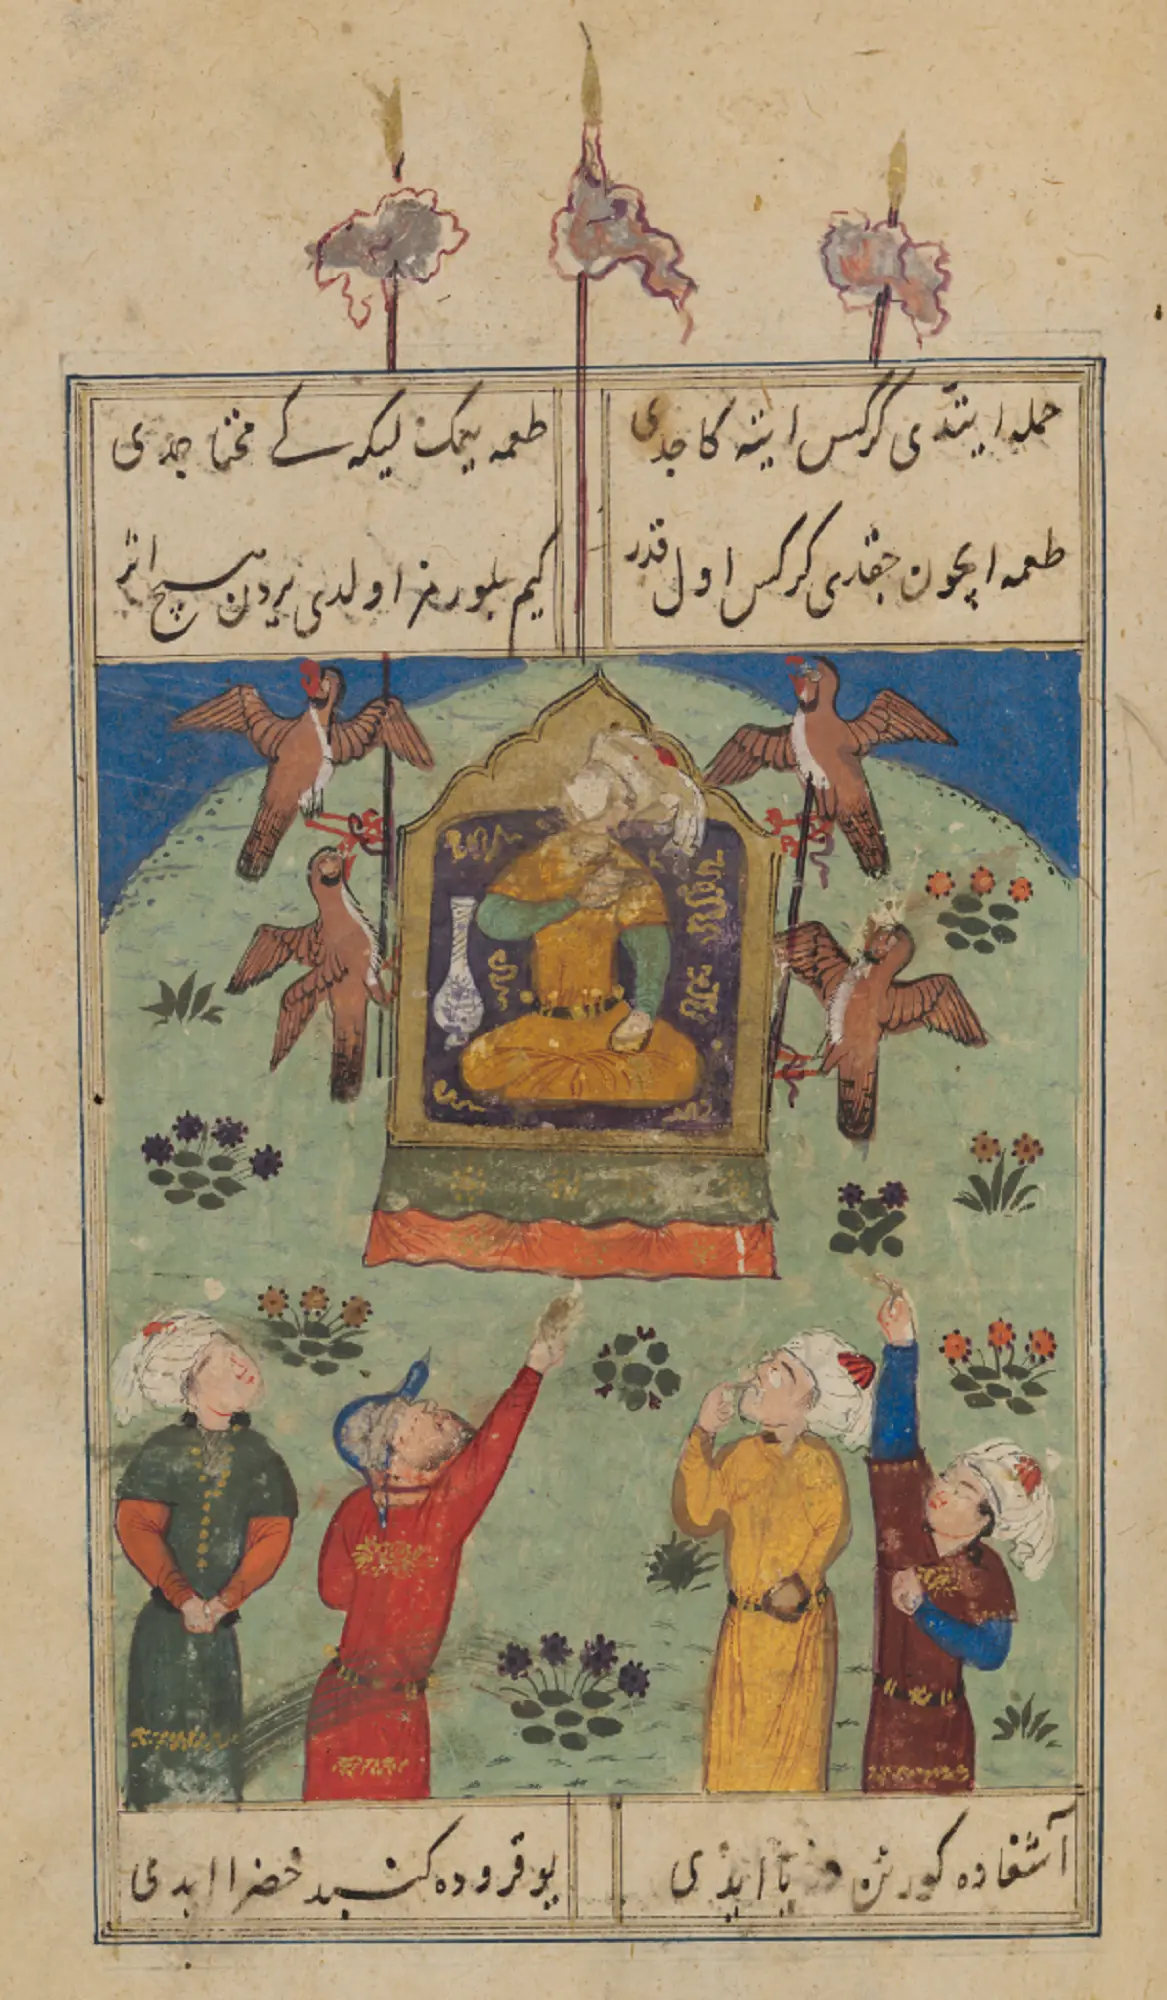 حمله ایتدی کرکس ایته طعمه یمک لیکه کے محتاجدی
طعمه ایچون چقاری کرکس اول قدر کیم بلورمز اولدی یردن هیچ اثر
آشغاده کورینن دریا ایدی یوقروده کنبد خضرا ایدی